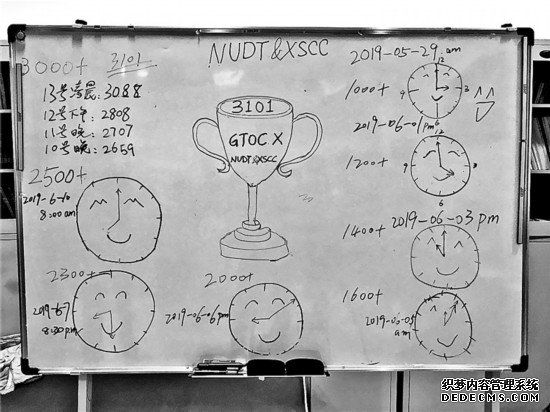 3000+ 3101
13号凌晨:3088
12号下午:2808
11号晚:2707
10号晚:2659
2500+
2019-6-10
8:00am
2300+
2019-6-7
8:30pm
NUDT&XSCC
3101
GTOC X
NUDT&XSCC
2000+
2019-06-06pm
2019-05-29.am
1000+
12
9
3
6
2019-06-01pm
1200+
12
9
3
6
1400+ 2019-06-03 pm
1600+
2019-06-05
am
织梦内容管理系统
DEDECMS.COM